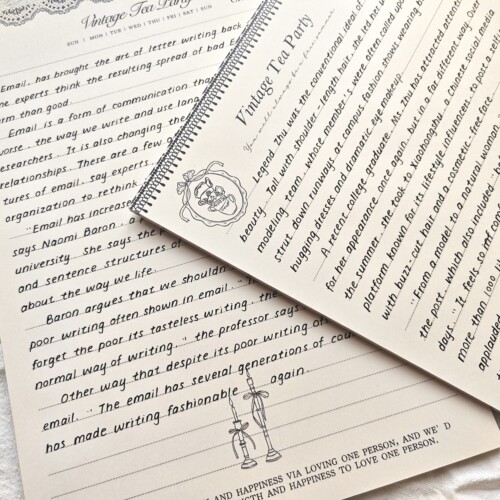 Vintage Tea Party
SUN | MON | TUE | WED | THU | FRI | SAT | SUN
Email, has brought the art of letter writing back
experts think the resulting spread of bad
than good.
Email is a form of communication that
worse, the way we write and use
researchers. It is also changing the
relationships. These are a few
tures of email, say experts
organization to rethink
"Email has increase
says Naomi Baron, a
university. She says the
and sentence structures of
about the way we life.
Baron argues that we shouldn
poor writing often shown in email. "
forget the poor its tasteless writing, the
normal way of writing." the professor says
Other way that despite its poor writing
email. "The email has several generations of
has made writing fashionable again.
AND HAPPINESS VIA LOVING ONE PERSON, AND WE'D
AND HAPPINESS TO LOVE ONE PERSON.
Vintage Tea Party
Legend Zhu was the conventional ideal of
beauty. Tall with shoulder-length hair, she
modeling team, whose member's were often called upon
strut down runways at campus fashion shows wearing
hugging dresses and dramatic eye makeup.
A recent college graduate, Ms. Zhu has attracted attenti
for her appearance once again, but in a far different way. Over
the summer, she took to Xiaohongshu, a Chinese social media
platform known for its lifestyle influencers, to post a
with buzz-cut hair and a cosmetic-free face.
"From a model to a natural woman
the post, which also included
days. "It feels so
more than
applaud